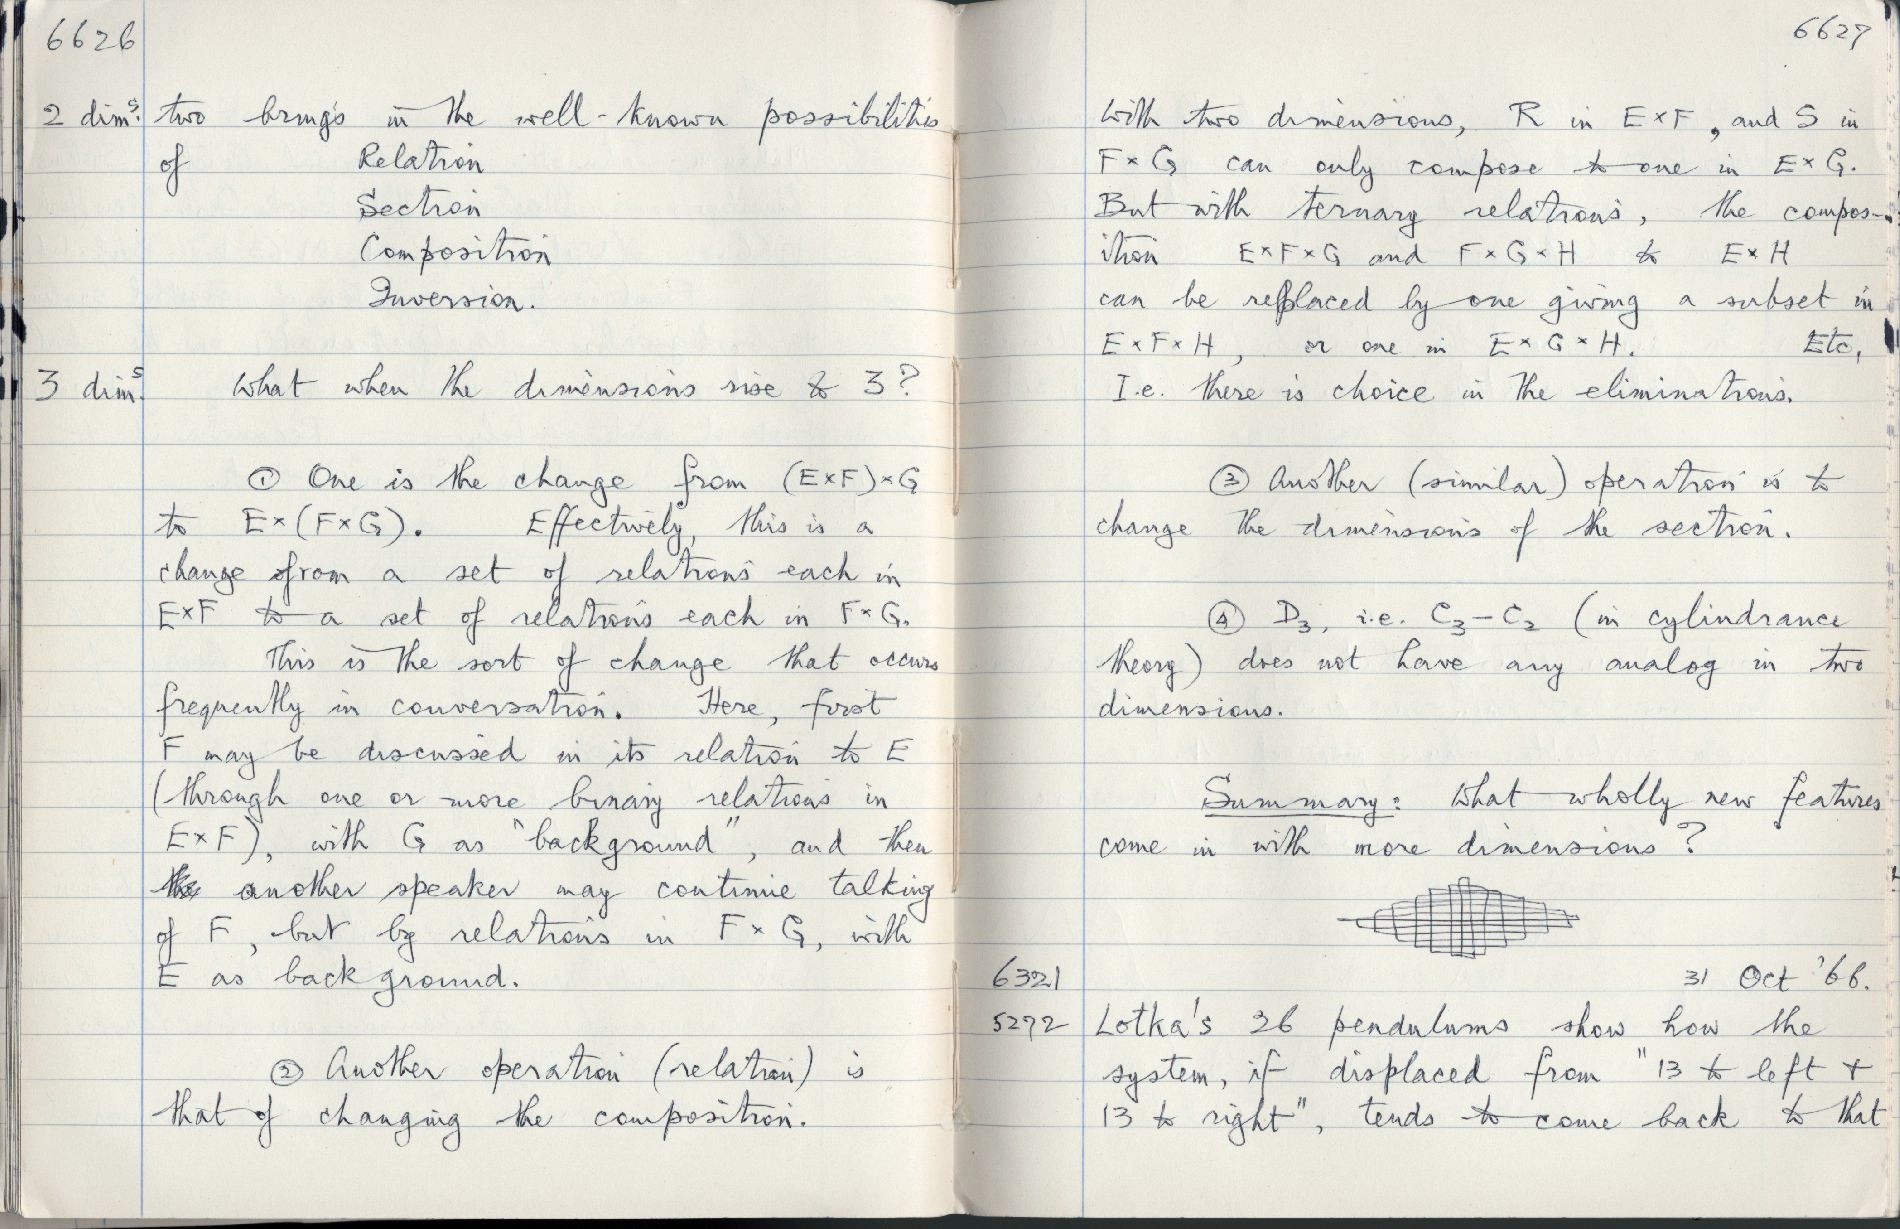 6626
2 dimˢ. two brings in the well-known possibilities
of Relation
Section
Composition
Inversion.
3 dimˢ. What when the dimensions rise to 3?
① One is the change from (E×F)×G
to E×(F×G). Effectively, this is a
change from a set of relations each in
E×F to a set of relations each in F×G.
This is the sort of change that occurs
frequently in conversation. Here, first
F may be discussed in its relation to E
(through one or more binary relations in
E×F), with G as "background", and then
another speaker may continue talking
of F, but by relations in F×G, with
E as background.
② Another operation (relation) is
that of changing the composition.
6627
With two dimensions, R in E×F, and S in
F×G can only compose to one in E×G.
But with ternary relations, the compos-
ition E×F×G and F×G×H to E×H
can be replaced by one giving a subset in
E×F×H, or one in E×G×H. Etc,
I.e. there is choice in the eliminations.
③ Another (similar) operation is to
change the dimensions of the section.
④ D₃, i.e. C₃-C₂ (in cylindrance
theory) does not have any analog in two
dimensions.
Summary: What wholly new features
come in with more dimensions?
6321 31 Oct '66.
5272 Lotka's 26 pendulums show how the
system, if displaced from "13 to left +
13 to right", tends to come back to that